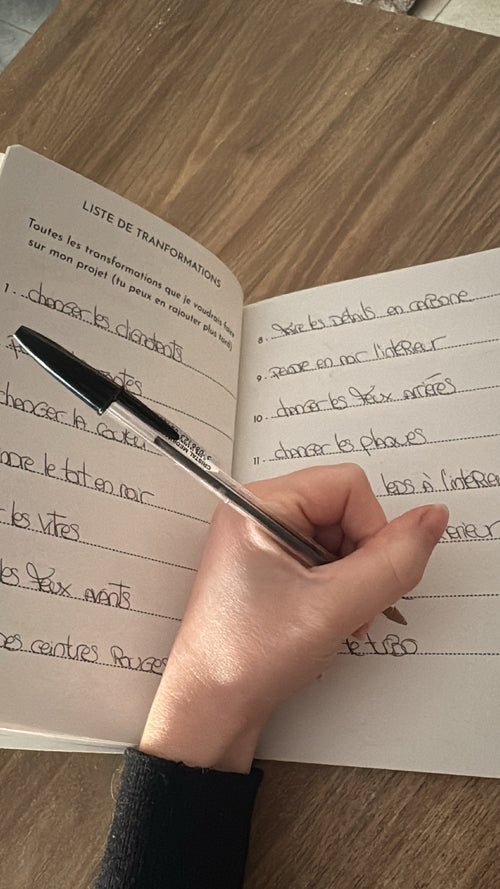 LISTE DE TRANFORMATIONS
Toutes les transformations que je voudrais faire
sur mon projet (tu peux en rajouter plus tard)
1. changer les clignotants
changer la
le toit en noir
les vitres
les feux avants
des ceintres Rouges
8. faire les Détails en carbone
9. peindre en noir l'intérieur
10. changer les feux arrières
11. changer les plaques
leds à l'intérieur
le turbo
CRISTAL